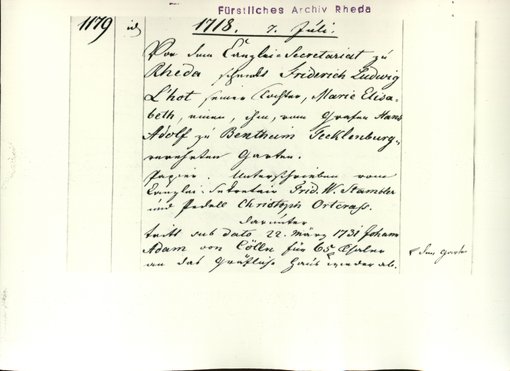 Fürstliches Archiv Rheda
1179
1718. 7. Juli.
Vor dem Canzlei-Secretariat zu
Rheda schenkt Friderich Ludwig
L'hot seiner Tochter, Marie Elisa-
beth, einen, ihm, vom Grafen Hans
Adolf zu Bentheim Tecklenburg-
verehrten Garten.
Papier. Unterschrieben vom
Canzlei-Sekretair Frid. W.
und Pedell Christoph
darunter
tritt sub dato 22. März 1731 Johann
Adam von Cölln für 65 Thaler
an das Gräfliche Haus wieder ab.
den Garten